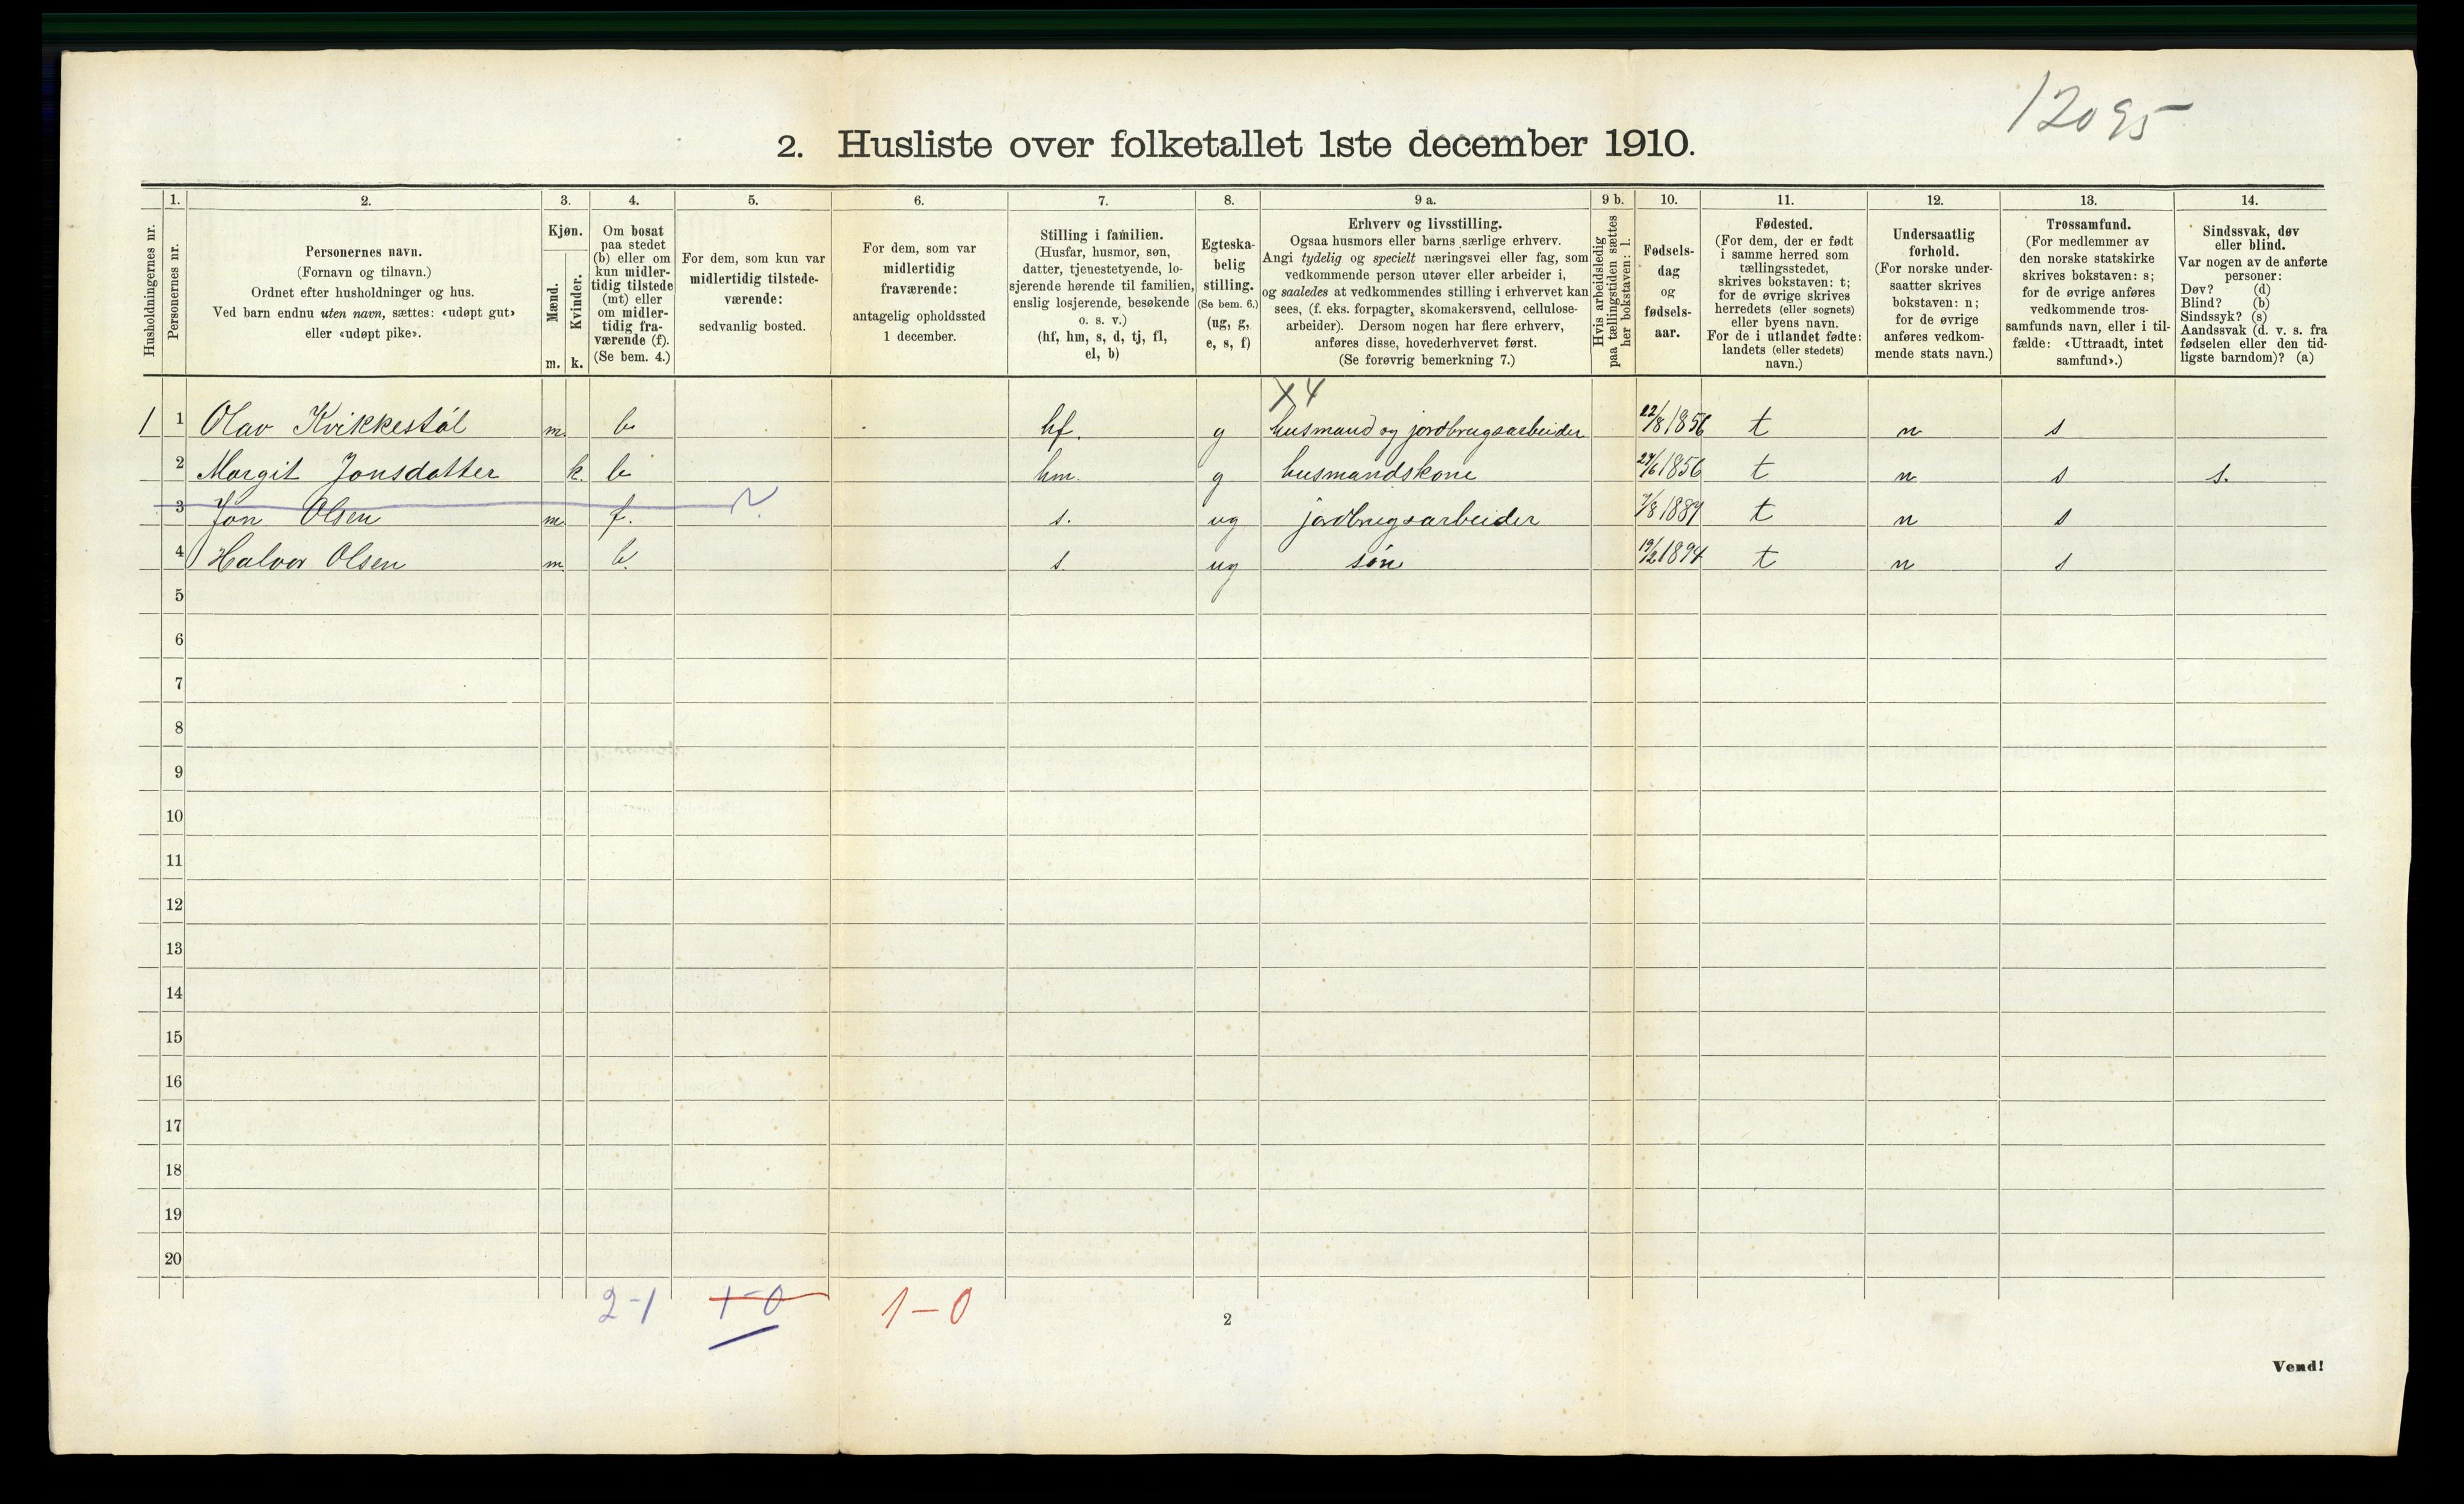 12095
2. Husliste over folketallet 1ste december 1910.
1. 2. 3. 4. 5. 6. 7. 8. 9 a. 9 b. 10. 11. 12. 13. 14.
Husholdningernes nr.
Personernes nr.
Personernes navn.
(Fornavn og tilnavn.)
Ordnet efter husholdninger og hus.
Ved barn endnu uten navn, sættes: «udøpt gut»
eller «udøpt pike».
Kjøn.
Mænd.
Kvinder.
m. k.
Om bosat
paa stedet
(b) eller om
kun midler-
tidig tilstede
(mt) eller
om midler-
tidig fra-
værende (f).
(Se bem. 4.)
For dem, som kun var
midlertidig tilstede-
værende:
sedvanlig bosted.
For dem, som var
midlertidig
fraværende:
antagelig opholdssted
1 december.
Stilling i familien.
(Husfar, husmor, søn,
datter, tjenestetyende, lo-
sjerende hørende til familien,
enslig losjerende, besøkende
o. s. v.)
(hf, hm, s, d, tj, fl,
el, b)
Egteska-
belig
stilling.
(Se bem. 6.)
(ug, g,
e, s, f)
Erhverv og livsstilling.
Ogsaa husmors eller barns særlige erhverv.
Angi tydelig og specielt næringsvei eller fag, som
vedkommende person utøver eller arbeider i,
og saaledes at vedkommendes stilling i erhvervet kan
sees, (f. eks. forpagter, skomakersvend, cellulose-
arbeider). Dersom nogen har flere erhverv,
anføres disse, hovederhvervet først.
(Se forøvrig bemerkning 7.)
Hvis arbeidsledig
paa tællingstiden sættes
her bokstaven: l.
Fødsels-
dag
og
fødsels-
aar.
Fødested.
(For dem, der er født
i samme herred som
tællingsstedet,
skrives bokstaven: t;
for de øvrige skrives
herredets (eller sognets)
eller byens navn.
For de i utlandet fødte:
landets (eller stedets)
navn.)
Undersaatlig
forhold.
(For norske under-
saatter skrives
bokstaven: n;
for de øvrige
anføres vedkom-
mende stats navn.)
Trossamfund.
(For medlemmer av
den norske statskirke
skrives bokstaven: s;
for de øvrige anføres
vedkommende tros-
samfunds navn, eller i til-
fælde: «Uttraadt, intet
samfund».)
Sindssvak, døv
eller blind.
Var nogen av de anførte
personer:
Døv? (d)
Blind? (b)
Sindssyk? (s)
Aandssvak (d. v. s. fra
fødselen eller den tid-
ligste barndom)? (a)
X4
1 1 Olav Kvikkestøl m. b. hf. g husmand og jordbrugsarbeider 22/8 1856 t n s
2 Margit Jonsdatter k. b hm. g husmandskone 24/6 1856 t n s s.
3 Jon Olsen m f. s. ug jordbrugsarbeider 7/8 1889 t n s
4 Halvor Olsen m b. s. ug søn 19/2 1894 t n s
5
6
7
8
9
10
11
12
13
14
15
16
17
18
19
20
2-1 1-0 1-0
2
Vend!